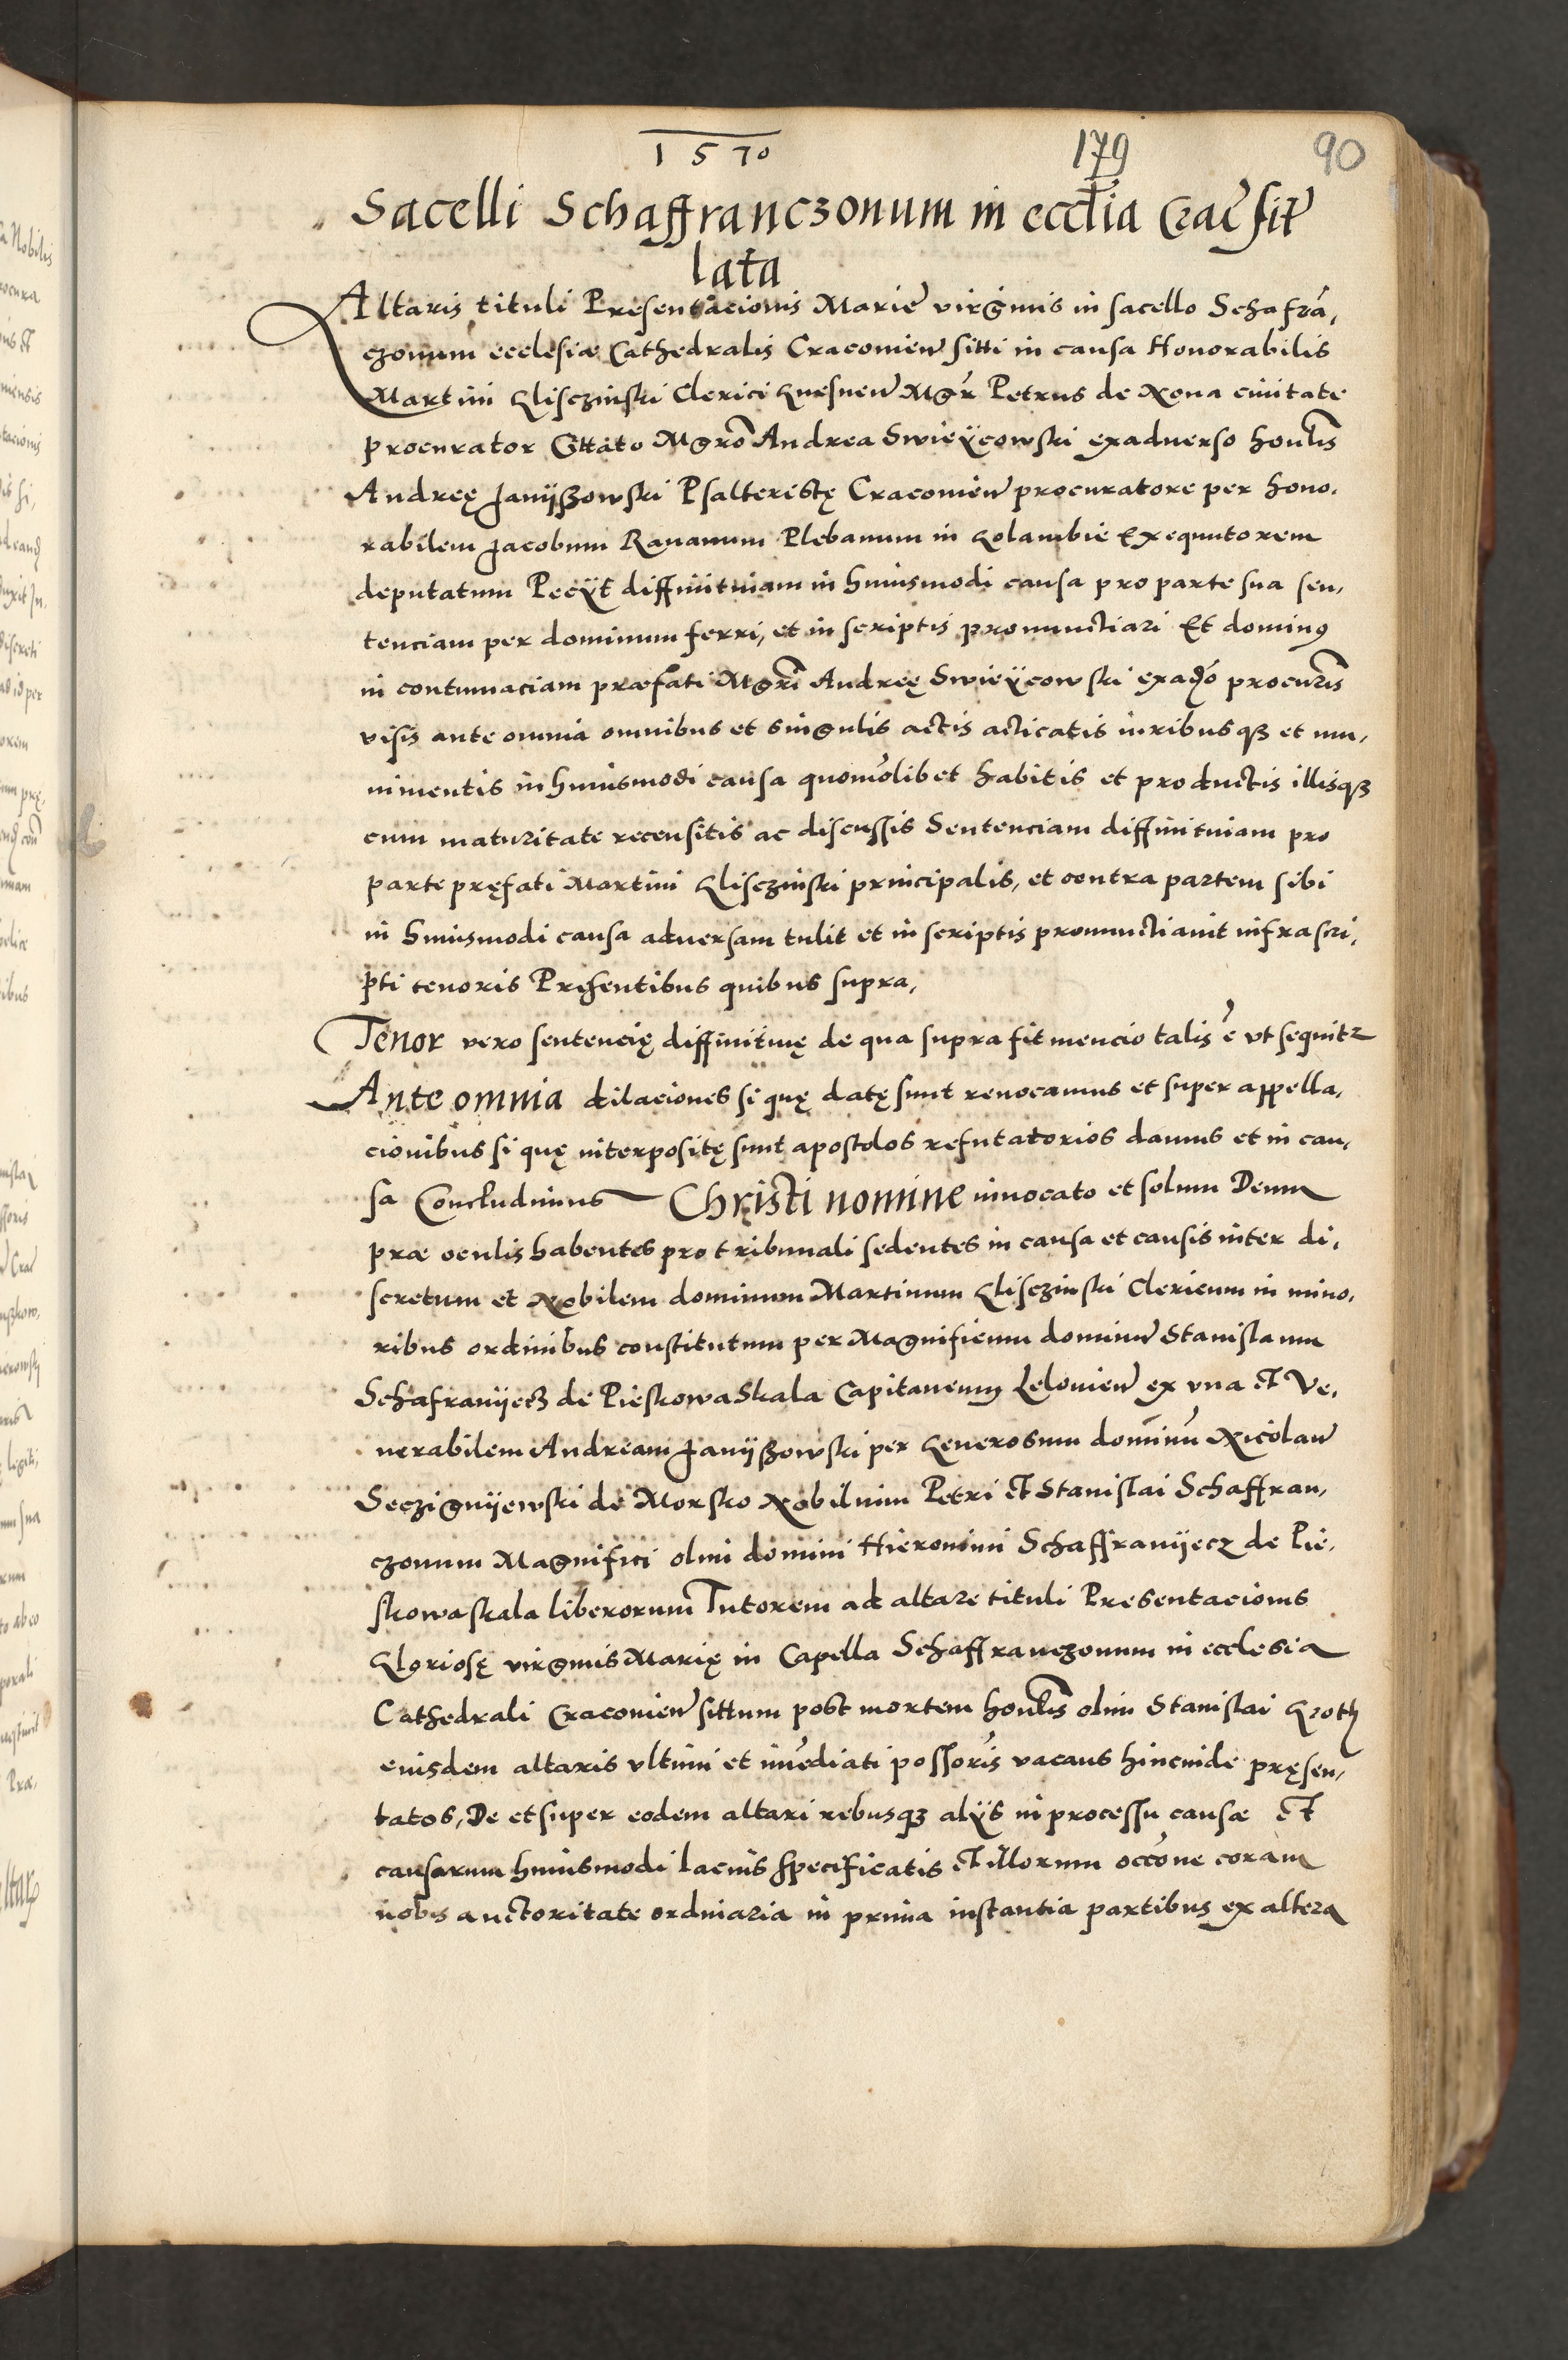 1570
179
90
Sacelli Schaffranczonum in eccłia Crac̄ sit̄
lata
Altaris tituli Presentacionis Marie virginis in sacello Schafrā,
czonum ecclesiæ Cathedralis Cracovien̄ sitti in causa Honorabilis
Martini Gliczinski Clerici Gnesnen̄ Mgr̄ Petrus de Nova civitate
procurator Cittato Mgrō Andrea Swieÿcowski exadverso honlīs
Andreę Janÿszowski Psalteristę Cracovien̄ procuratore per hono,
rabilem Jacobum Ravanum Plebanum in Golambie Exequutorem
deputatum Pecÿt diffinitivam in huiusmodi causa pro parte sua sen,
tenciam per dominum ferri, et in scriptis pronunctiari Et dominꝯ
in contumaciam præfati Mgrī Andreę Swieÿcowski exadṽo procurīs
visis ante omnia omnibus et singulis actis acticatis iuribusqꝫ et mu,
nimentis in huiusmodi causa quomōlibet habitis et productis illisqꝫ
cum maturitate recensitis ac discussis Sentenciam diffinitivam pro
parte pręfati Martini Glisczinski principalis, et contra partem sibi
in huiusmodi causa adversam tulit et in scriptis pronunctiavit infrascri,
pti tenoris Presentibus quibus supra,
Tenor vero sentencię diffinitivę de qua supra fit mencio talis ē ut sequitr
Ante omnia dilaciones si quę datę sunt revocamus et super appella,
cionibus si quę interpositę sunt apostolos refutatorios damus et in cau,
sa Concludimus Christi nomine invocato et solum Deum
præ oculis habentes pro tribunali sedentes in causa et causis inter di,
scretum et Nobilem dominum Martinum Glisczinski Clericum in mino,
ribus ordinibus constitutum per Magnificum dominū Stanislaum
Schafranÿecz de Pieskowa Skala Capitaneum Lelovien̄ ex una et Ve,
nerabilem Andream Janÿszowski per Generosum domīnū Nicolaū
Seczignÿewski de Morsko Nobilium Petri et Stanislai Schaffran,
czonum Magnifici olim domini Hieronimi Schaffranÿecz de Pie,
skowaskala liberorum Tutorem ad altare tituli Presentacionis
Gloriosę virginis Marię in Capella Schaffranczonum in ecclesia
Cathedrali Cracovien̄ sittum post mortem honlīs olim Stanislai Groth
eiusdem altaris ultimi et imēdiati possorīs vacans hincinde pręsen,
tatos, De et super eodem altari rebusqꝫ alÿs in processu causæ et
causarum huiusmodi lacius specificatis et illorum occōne coram
nobis auctoritate ordinaria in prima instantia partibus ex altera